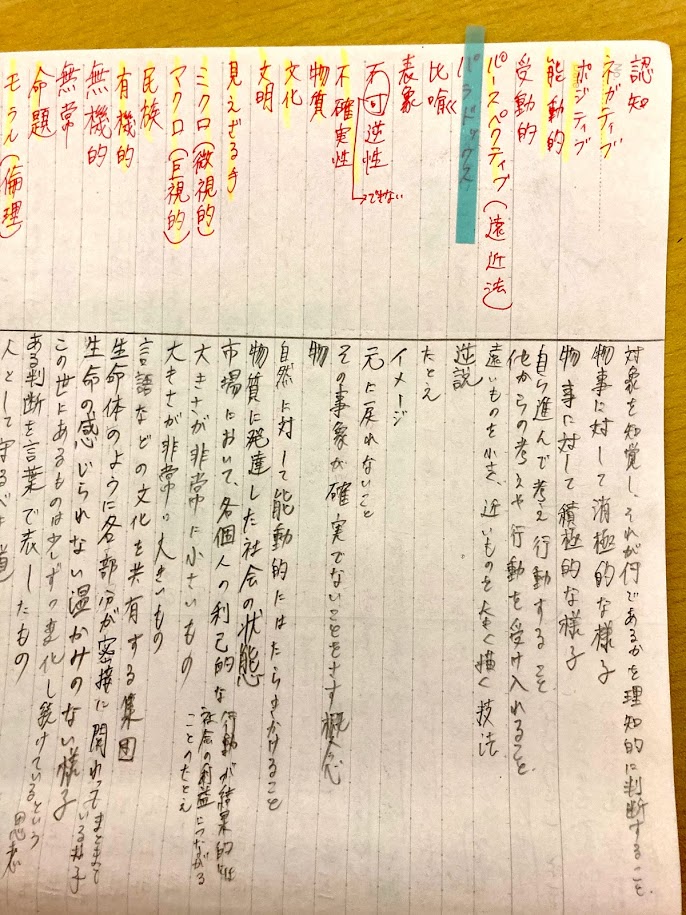 認知
対象を知覚し、それが何であるかを理知的に判断すること。
ネガティブ
物事に対して消極的な様子
ポジティブ
物事に対して積極的な様子
能動的
自ら進んで考え行動すること
受動的
他からの考えや行動を受け入れること
パースペクティブ(遠近法)
遠いものを小さく、近いものを大きく描く技法
パラドックス
逆説
比喩
たとえ
表象
イメージ
不可逆性
→できない
元に戻れないこと
不確実性
その事象が確実でないことをさす概念
物質
物
文化
自然に対して能動的にはたらきかけること
文明
物質に発達した社会の状態
見えざる手
市場において、各個人の利己的な行動が結果的には
社会の利益につながる
ことのたとえ
ミクロ(微視的)
大きさが非常に小さいもの
マクロ(巨視的)
大きさが非常に大きいもの
民族
言語などの文化を共有する集団
有機的
生命体のように各部分が密接に関わってまとまっている様子
無機的
生命の感じられない温かみのない様子
無常
この世にあるものは少しずつ変化し続けているという思想
命題
ある判断を言葉で表したもの
モラル(倫理)
人として守るべき道